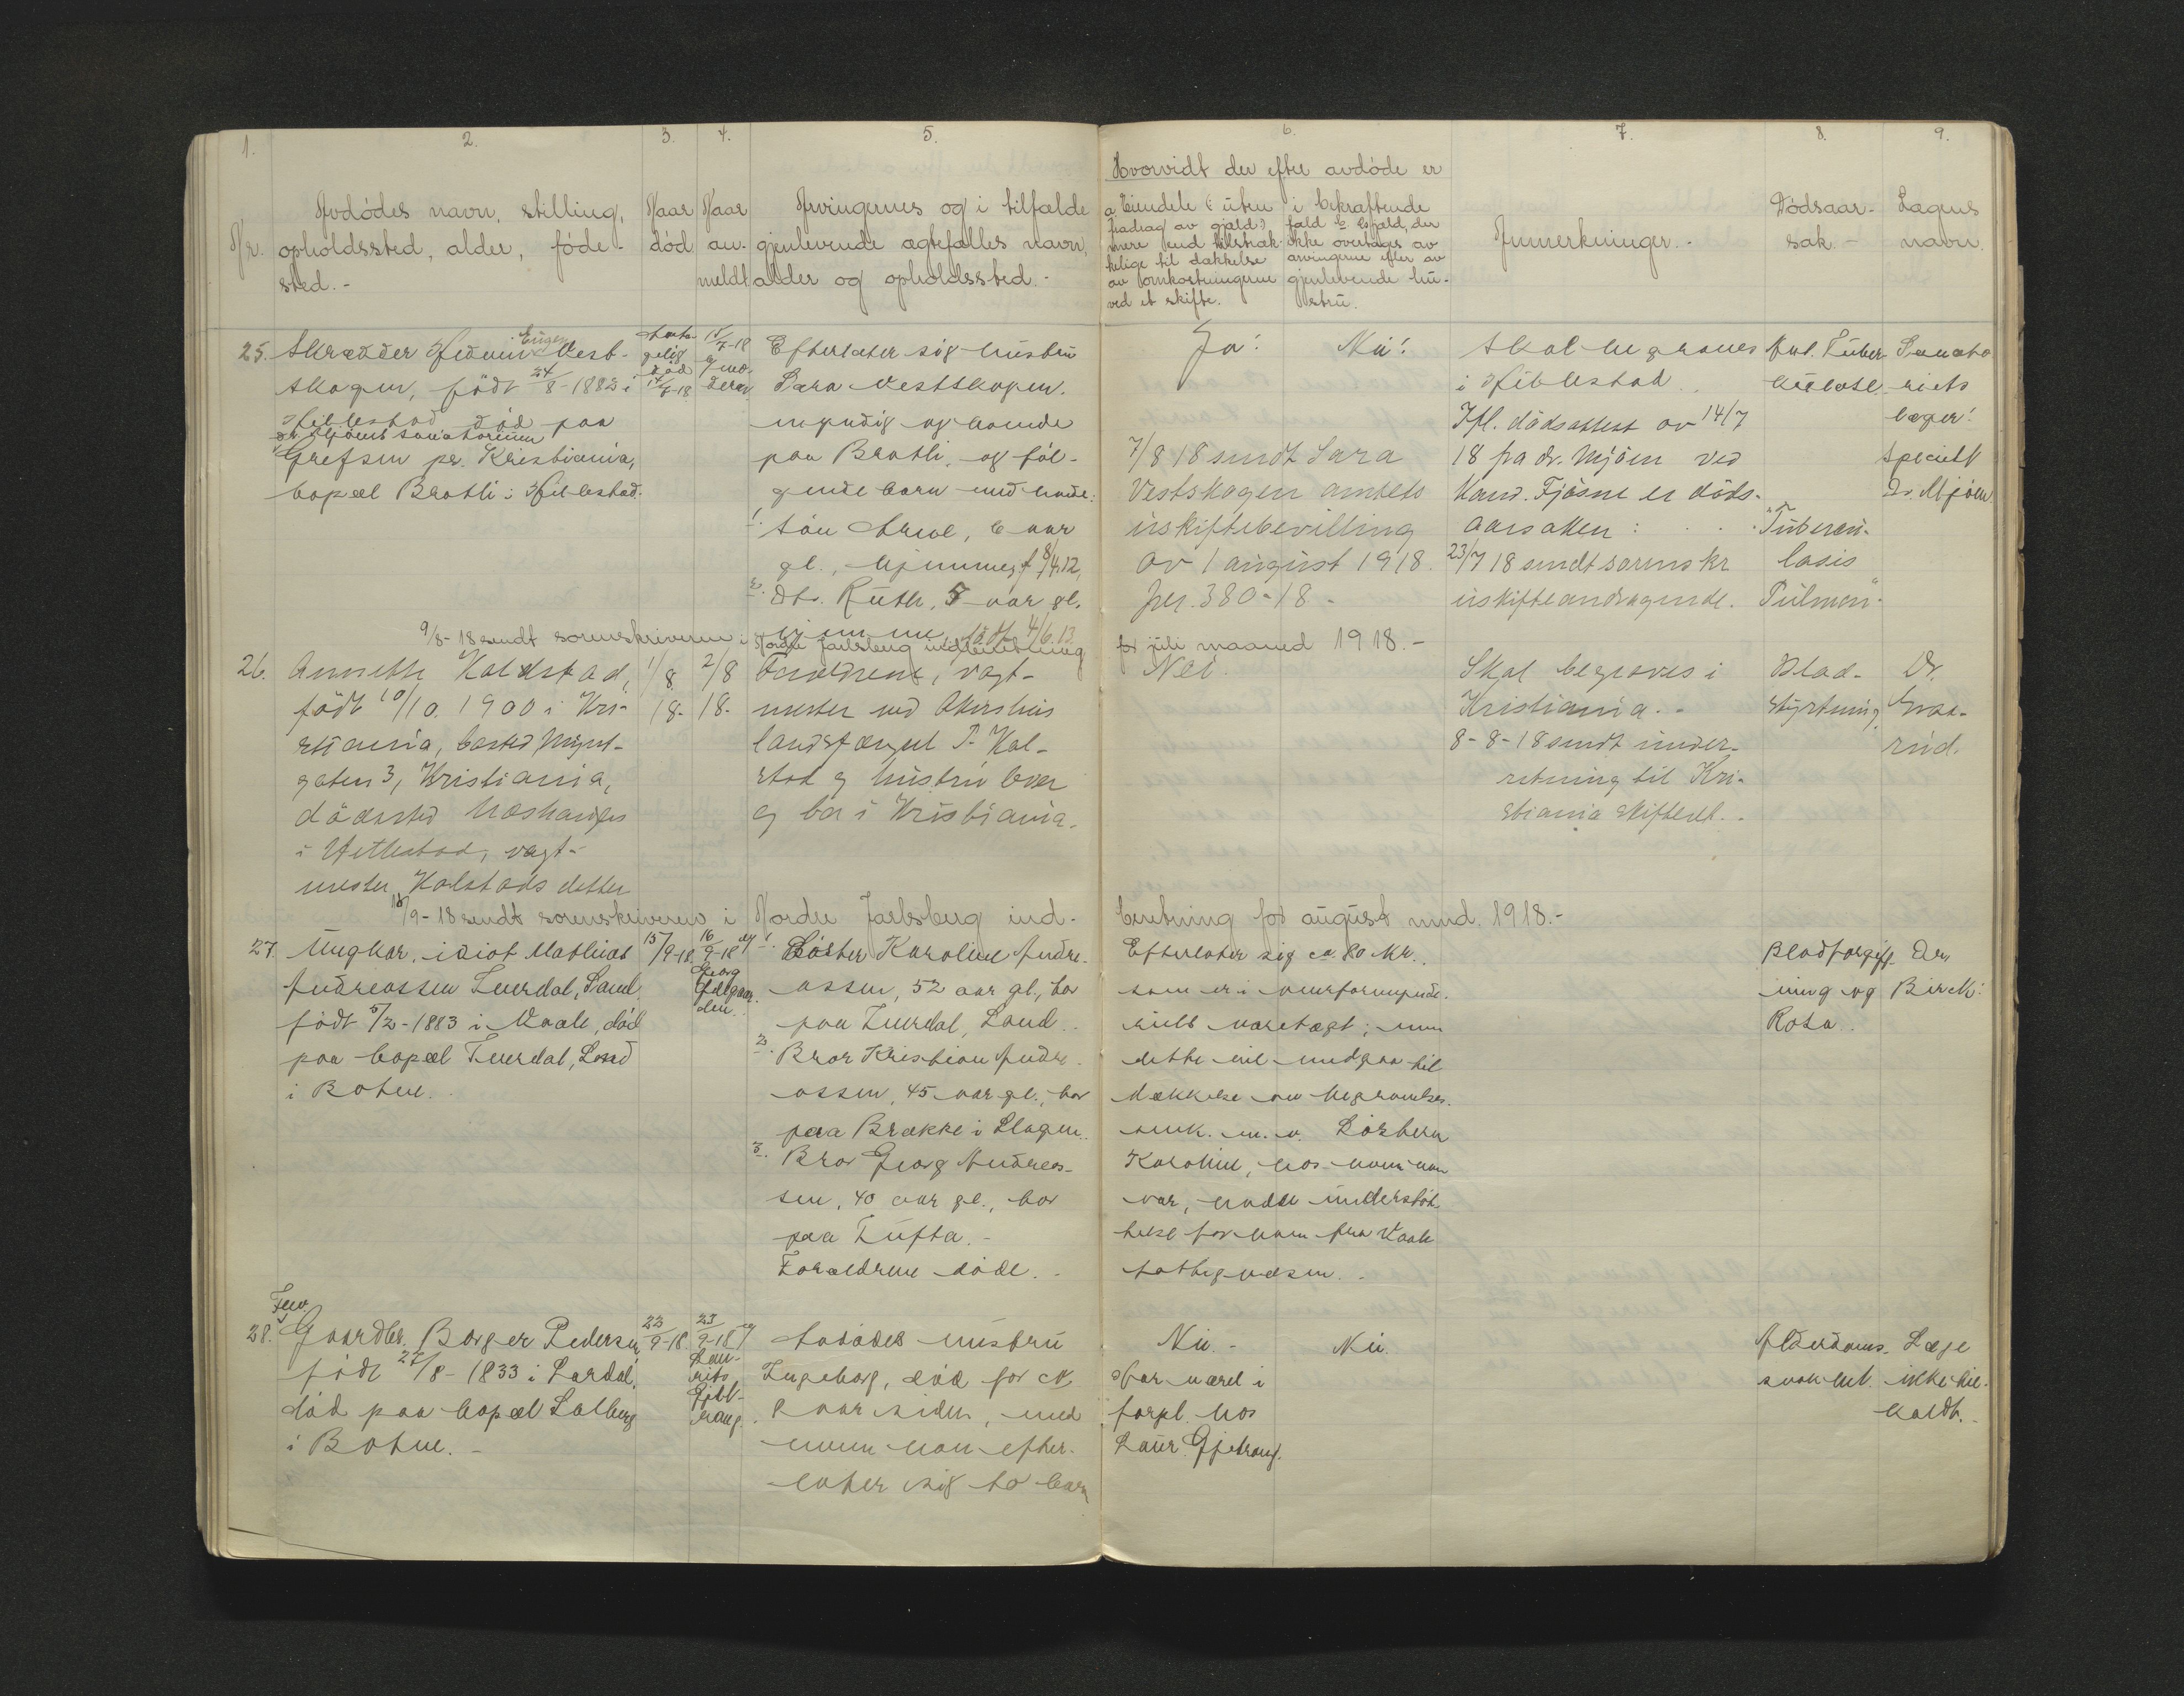 1.
2.
3.
4.
5.
6.
7.
8.
9.
Nr.
Avdødes navn, stilling,
opholdssted, alder, føde-
sted.-
Naar
død
Naar
an-
meldt
Arvingernes og i tilfælde
gjenlevende ægtefælles navn,
alder og opholdssted.-
Hvorvidt der efter avdøde er
a Eiendele (uten
fradrag av gjæld)
mere end tilstræk-
kelige til dækkelse
av omkostningerne
ved et skifte.
i bekræftende
fald b gjæld, der
ikke overtages av
arvingerne eller av
gjenlevende hu-
stru.
Anmerkninger.-
Dødsaar-
sak.-
Lægens
navn.
25.
Skrædder Hedvin Eugen Vest-
skogen, født 24/8-1882 i
Hillestad død paa
dr. Mjøens sanatorium
Grefsen pr. Kristiania,
bopæl Bratli i Hillestad.
død
14/7-18
15/7-18
Efterlater sig hustru
Sara Vestskogen.
myndig og boende
paa Bratli, og føl-
gende barn med hende:
1. søn Arne, 6 aar
gl., hjemme, f 8/4.12,
2. dtr. Ruth, 5 aar gl.
hjemme, født 4/6.13
Ja!
Nei!
7/8 18 sendt Sara
Vestskogen amtets
uskiftebevilling
av 1 august 1918.
jnr. 380-18-
Skal begraves
i Hillestad.
Ifl. dødsattest av 14/7
18 fra dr. Mjøen ved
Kand. Fjøsne er døds-
aarsaken:
23/7 18 sendt sorenskr
uskifteandragende.
Pul. Tuber-
kulose.
"Tubercu-
losis
Pulmon"
Sanato-
riets
læger!
Specielt
Dr. Mjøen
9/8-18 sendt sorenskriveren i Nordre Jarlsberg indberetning for juli maaned 1918.-
26.
Annette Kaldstad,
født 10/10. 1900 i Kri-
stiania, bosted Mynt-
gaten 3, Kristiania,
dødssted
i Hillestad, vagt-
mester Kalstads datter
1/8
18-
2/8
18-
Forældrene, vagt-
mester ved Akershus
landsfængsel P. Kal-
stad og hustru lever
og bor i Kristiania.
Nei.
Skal begraves i
Kristiania.-
8-8-18 sendt under-
retning til Kri-
stiania Skifteret.-
Blod-
styrtning
Dr.
Graa-
rud.
10/9-18 sendt sorenskriveren i Nordre Jarlsberg ind-
beretning for august mnd. 1918.-
27.
Ungkar, idiot Mathias
Andreassen Tuerdal, Sand
født 5/2-1883 i Vaale, død
paa bopæl Tuerdal, Sand
i Botne.
15/9-18.
16/9-18 af
Georg
1. Søster Karoline Andre-
assen, 52 aar gl., bor
paa Tuerdal, Sand.
2. Bror Kristian Andre-
assen, 45 aar gl., bor
paa Brække i Slagen.
3. Bror Georg Andreas-
sen, 40 aar gl., bor
paa Tufta.-
Forældrene døde.-
Efterlater sig ca 80 kr.
som er i overformynde-
riets varetægt; men
dette vil medgaa til
dækkelse av begravelses-
omk. m. v. Søsteren
Karoline, hos hvem han
var, hadde understøt-
telse for ham fra Vaale
fattigvæsen.-
Blodforgift-
ning og
Rosa.
Dr.
Birck.
28.
Fhv.
Gaardbr. Borger Pedersen,
født 27/8-1833 i Lardal,
død paa bopæl Solberg
i Botne.-
22/9-18.
23/9-18 af
Lau-
rits
Avdødes hustru
Ingeborg, død for ca.
8 aar siden, med
hvem han efter-
later sig to barn
Nei.-
Nei.
Har været i
forpl. hos
Laur. Gjetrang.
Alderdoms-
svakhet.
Læge
ikke til-
kaldt.-